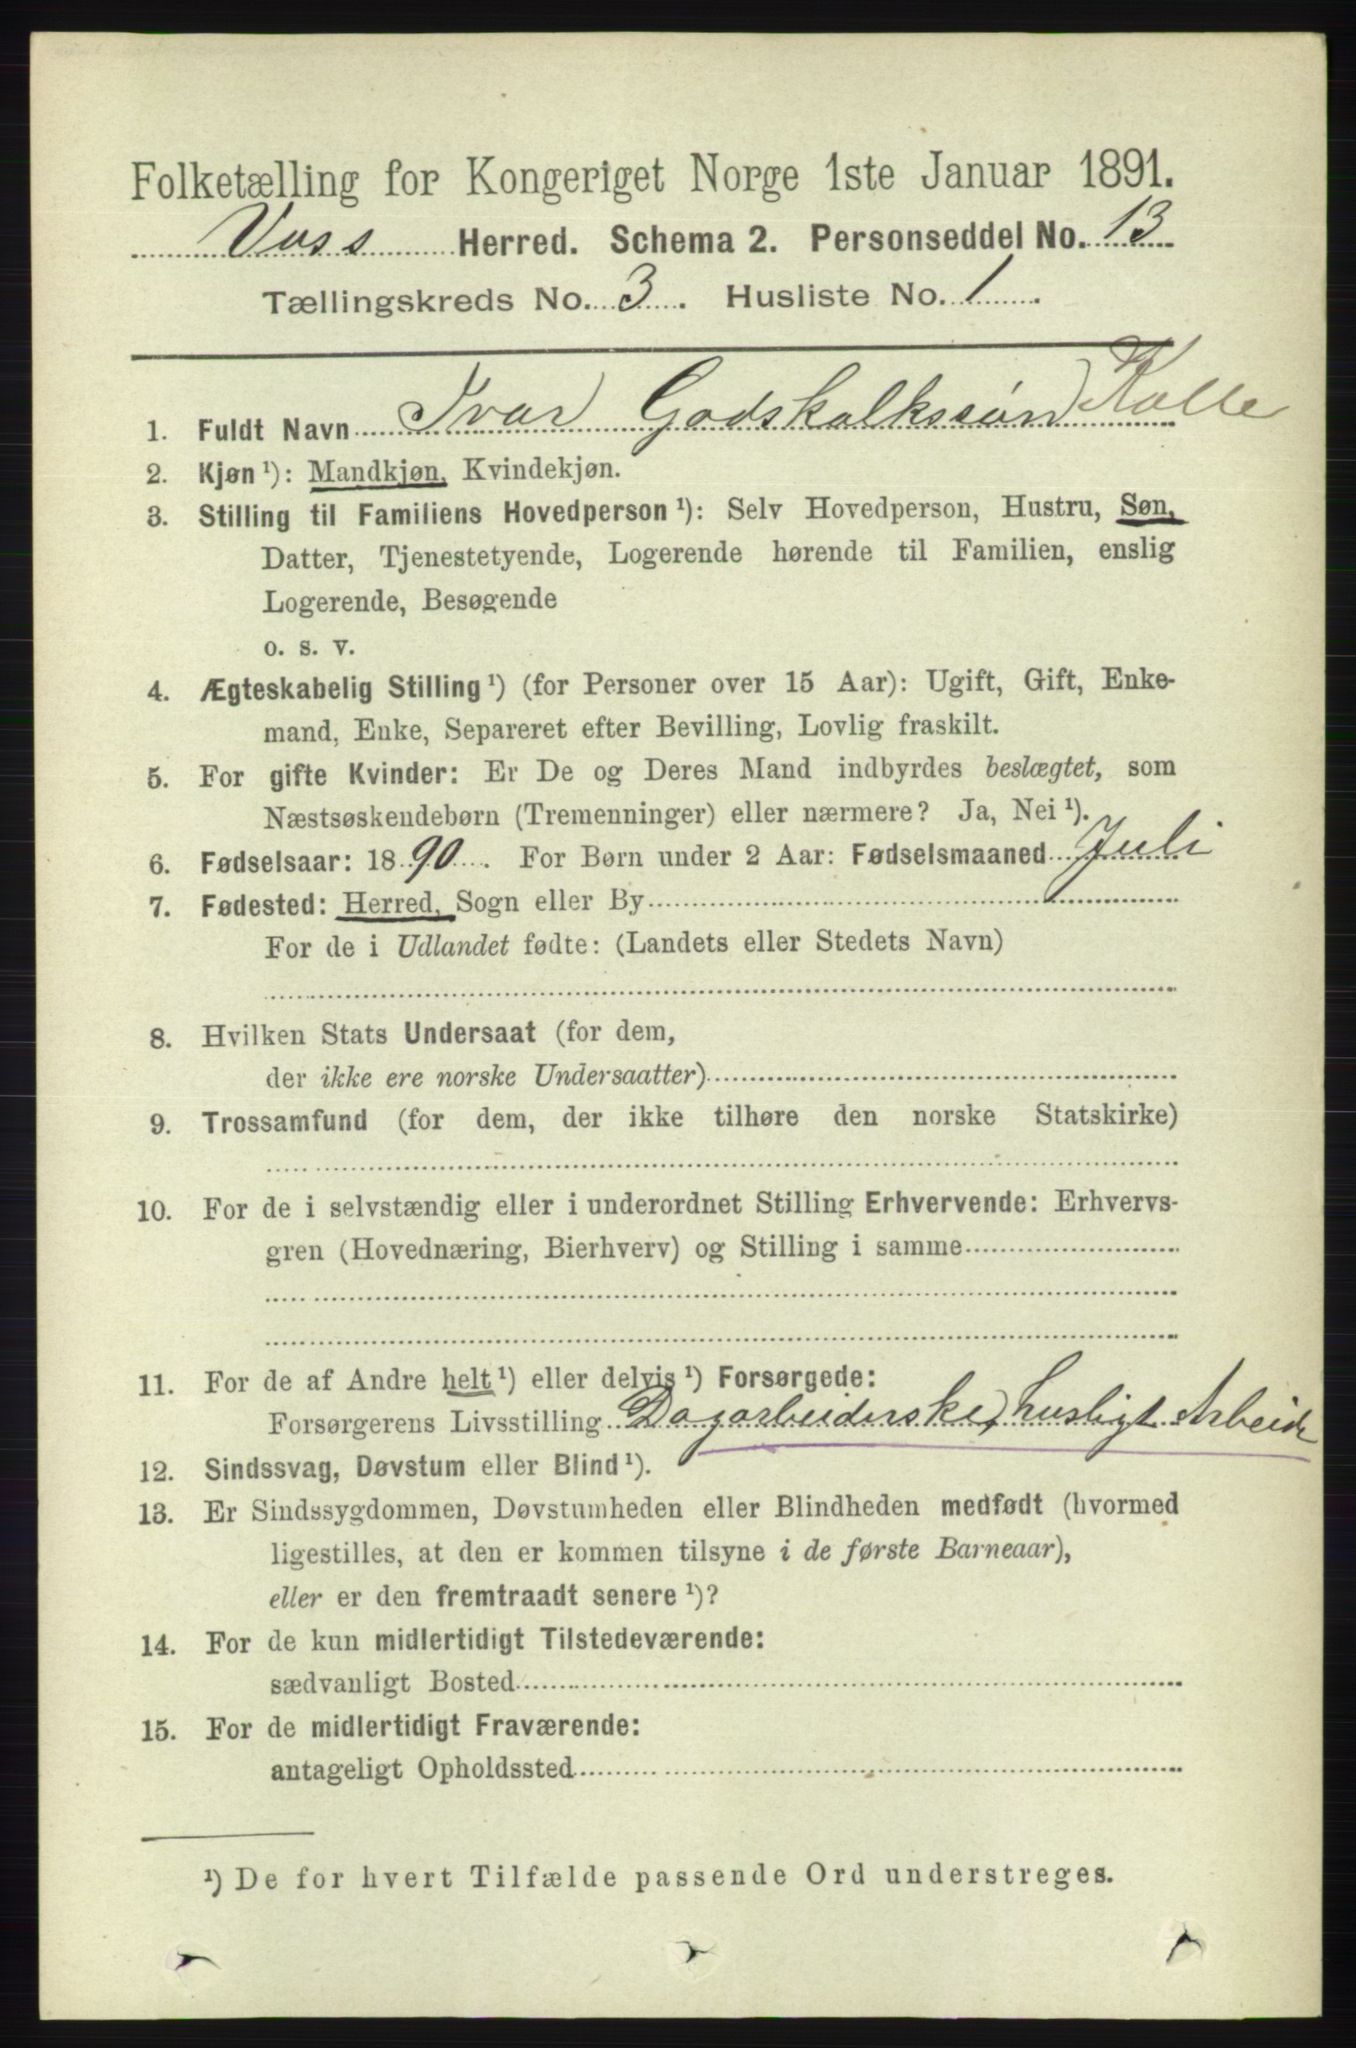 Folketælling for Kongeriget Norge 1ste Januar 1891.
Voss Herred. Schema 2. Personseddel No. 13
Tællingskreds No. 3. Husliste No. 1.
1. Fuldt Navn Ivar Godskalkssøn Kolle
2. Kjøn ¹): Mandkjøn, Kvindekjøn.
3. Stilling til Familiens Hovedperson ¹): Selv Hovedperson, Hustru, Søn,
Datter, Tjenestetyende, Logerende hørende til Familien, enslig
Logerende, Besøgende
o. s. v.
4. Ægteskabelig Stilling ¹) (for Personer over 15 Aar): Ugift, Gift, Enke-
mand, Enke, Separeret efter Bevilling, Lovlig fraskilt.
5. For gifte Kvinder: Er De og Deres Mand indbyrdes beslægtet, som
Næstsøskendebørn (Tremenninger) eller nærmere? Ja, Nei ¹).
6. Fødselsaar: 1890. For Børn under 2 Aar: Fødselsmaaned Juli
7. Fødested: Herred, Sogn eller By
For de i Udlandet fødte: (Landets eller Stedets Navn)
8. Hvilken Stats Undersaat (for dem,
der ikke ere norske Undersaatter)
9. Trossamfund (for dem, der ikke tilhøre den norske Statskirke)
10. For de i selvstændig eller i underordnet Stilling Erhvervende: Erhvervs-
gren (Hovednæring, Bierhverv) og Stilling i samme
11. For de af Andre helt ¹) eller delvis ¹) Forsørgede:
Forsørgerens Livsstilling Dagarbeiderske, husligt Arbeide
12. Sindssvag, Døvstum eller Blind ¹).
13. Er Sindssygdommen, Døvstumheden eller Blindheden medfødt (hvormed
ligestilles, at den er kommen tilsyne i de første Barneaar),
eller er den fremtraadt senere ¹)?
14. For de kun midlertidigt Tilstedeværende:
sædvanligt Bosted
15. For de midlertidigt Fraværende:
antageligt Opholdssted
¹) De for hvert Tilfælde passende Ord understreges.